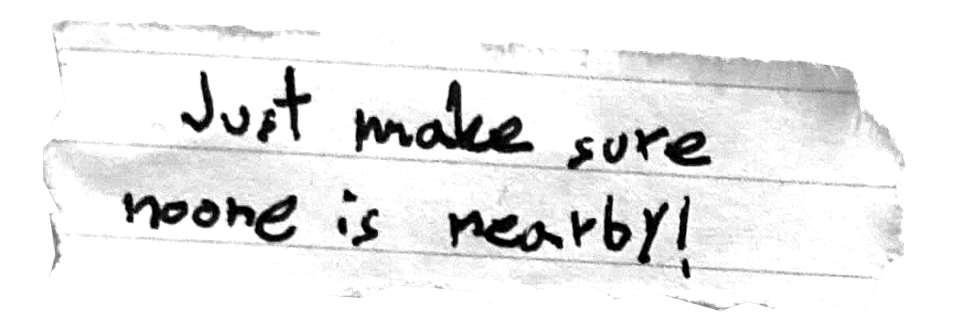 Just make sure
noone is nearby!